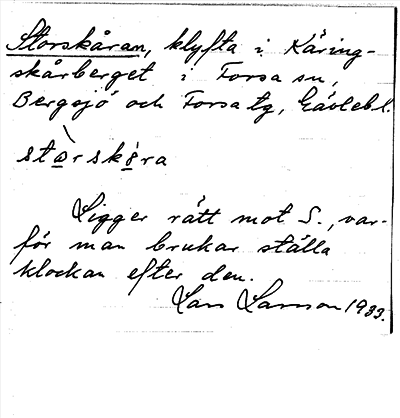 Storskåran, klyfta i Käring-
skårberget i Forsa sn,
Bergsjö och Forsa tg, Gävlebl.
stòrskå̀ra
Ligger rätt mot S., var-
för man brukar ställa
klockan efter den.
Lars Larsson 1933.